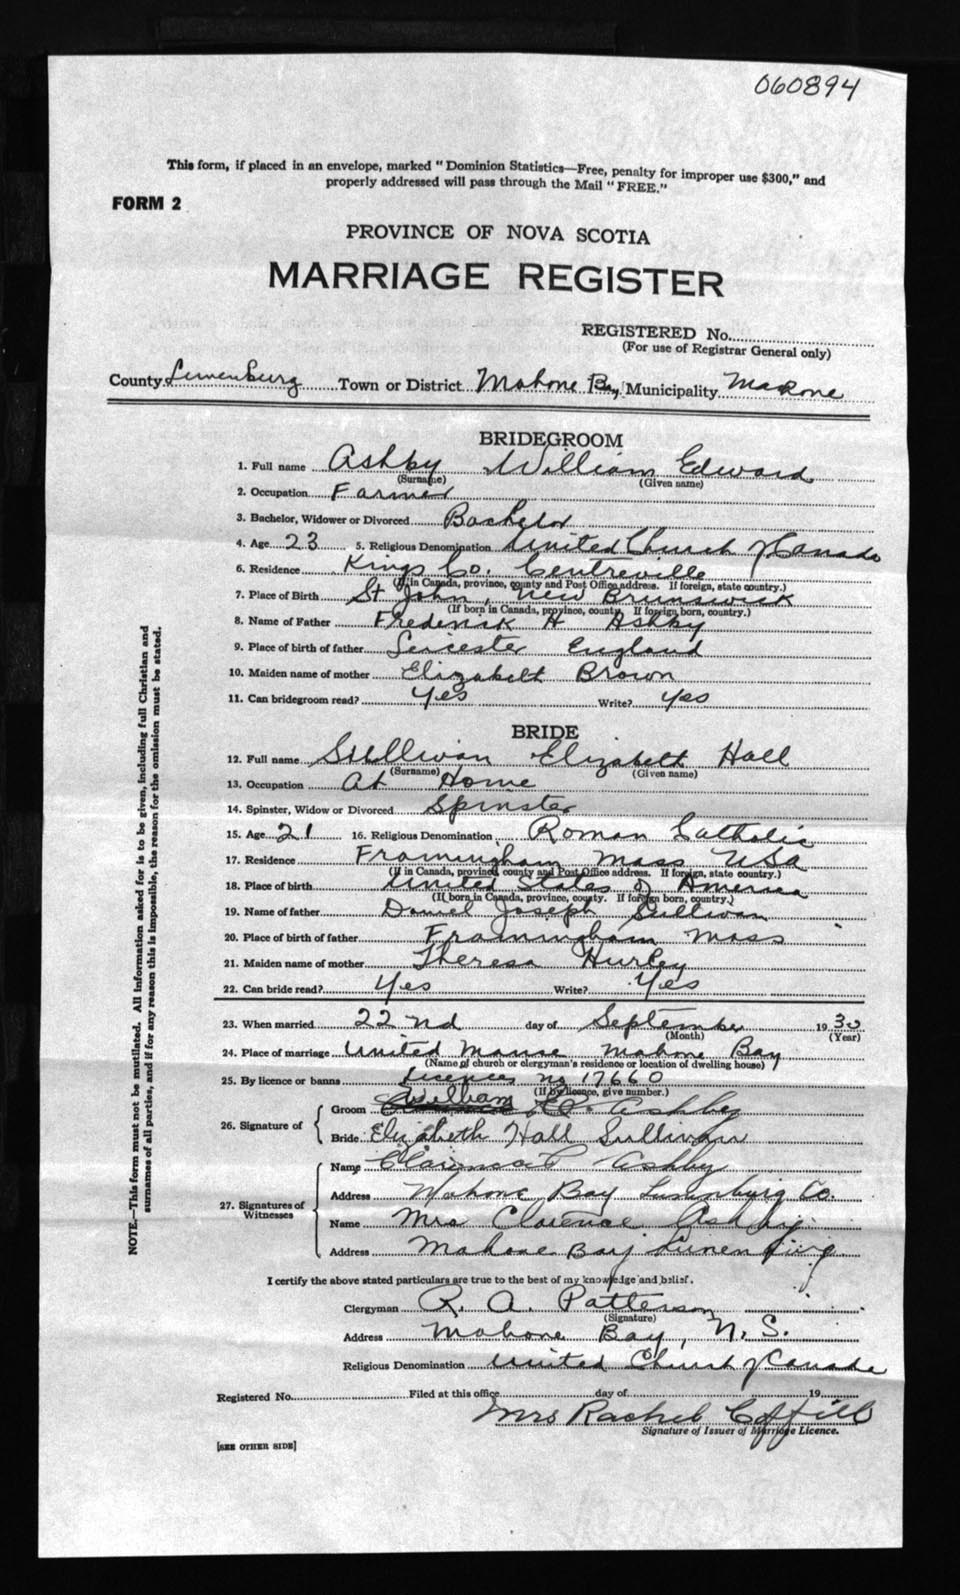 060894
This form, if placed in an envelope, marked "Dominion Statistics—Free, penalty for improper use $300," and
properly addressed will pass through the Mail "FREE."
FORM 2
PROVINCE OF NOVA SCOTIA
MARRIAGE REGISTER
REGISTERED No.
(For use of Registrar General only)
County Lunenburg Town or District Mahone Bay Municipality Mahone
BRIDEGROOM
1. Full name Ashby William Edward
(Surname) (Given name)
2. Occupation Farmer
3. Bachelor, Widower or Divorced Bachelor
4. Age 23 5. Religious Denomination United Church of Canada
6. Residence Kings Co. Centreville
(If in Canada, province, county and Post Office address. If foreign, state country.)
7. Place of Birth St John, New Brunswick
(If born in Canada, province, county. If foreign born, country.)
8. Name of Father Frederick H Ashby
9. Place of birth of father Leicester England
10. Maiden name of mother Elizabeth Brown
11. Can bridegroom read? Yes Write? Yes
BRIDE
12. Full name Sullivan Elizabeth Hall
(Surname) (Given name)
13. Occupation At Home
14. Spinster, Widow or Divorced Spinster
15. Age 21 16. Religious Denomination Roman Catholic
17. Residence Framingham Mass USA
(If in Canada, province county and Post Office address. If foreign, state country.)
18. Place of birth United States of America
(If born in Canada, province, county. If foreign born, country.)
19. Name of father Daniel Joseph Sullivan
20. Place of birth of father Framingham Mass
21. Maiden name of mother Theresa Hurley
22. Can bride read? Yes Write? Yes
23. When married 22nd day of September 1930
(Month) (Year)
24. Place of marriage United Manse Mahone Bay
(Name of church or clergyman's residence or location of dwelling house)
25. By licence or banns Licences no 17660
(If by licence, give number.)
26. Signature of
Groom William E. Ashby
Bride Elizabeth Hall Sullivan
27. Signatures of Witnesses
Name Clarence Ashby
Address Mahone Bay Lunenburg Co.
Name Mrs Clarence Ashby
Address Mahone Bay Lunenburg
I certify the above stated particulars are true to the best of my knowledge and belief.
Clergyman R. A. Patterson
(Signature)
Address Mahone Bay, N. S.
Religious Denomination United Church of Canada
Registered No. Filed at this office day of 19
Mrs Rachel Coffill
Signature of Issuer of Marriage Licence.
[SEE OTHER SIDE]
NOTE.—This form must not be mutilated. All information asked for is to be given, including full Christian and
surnames of all parties, and if for any reason this is impossible, the reason for the omission must be stated.